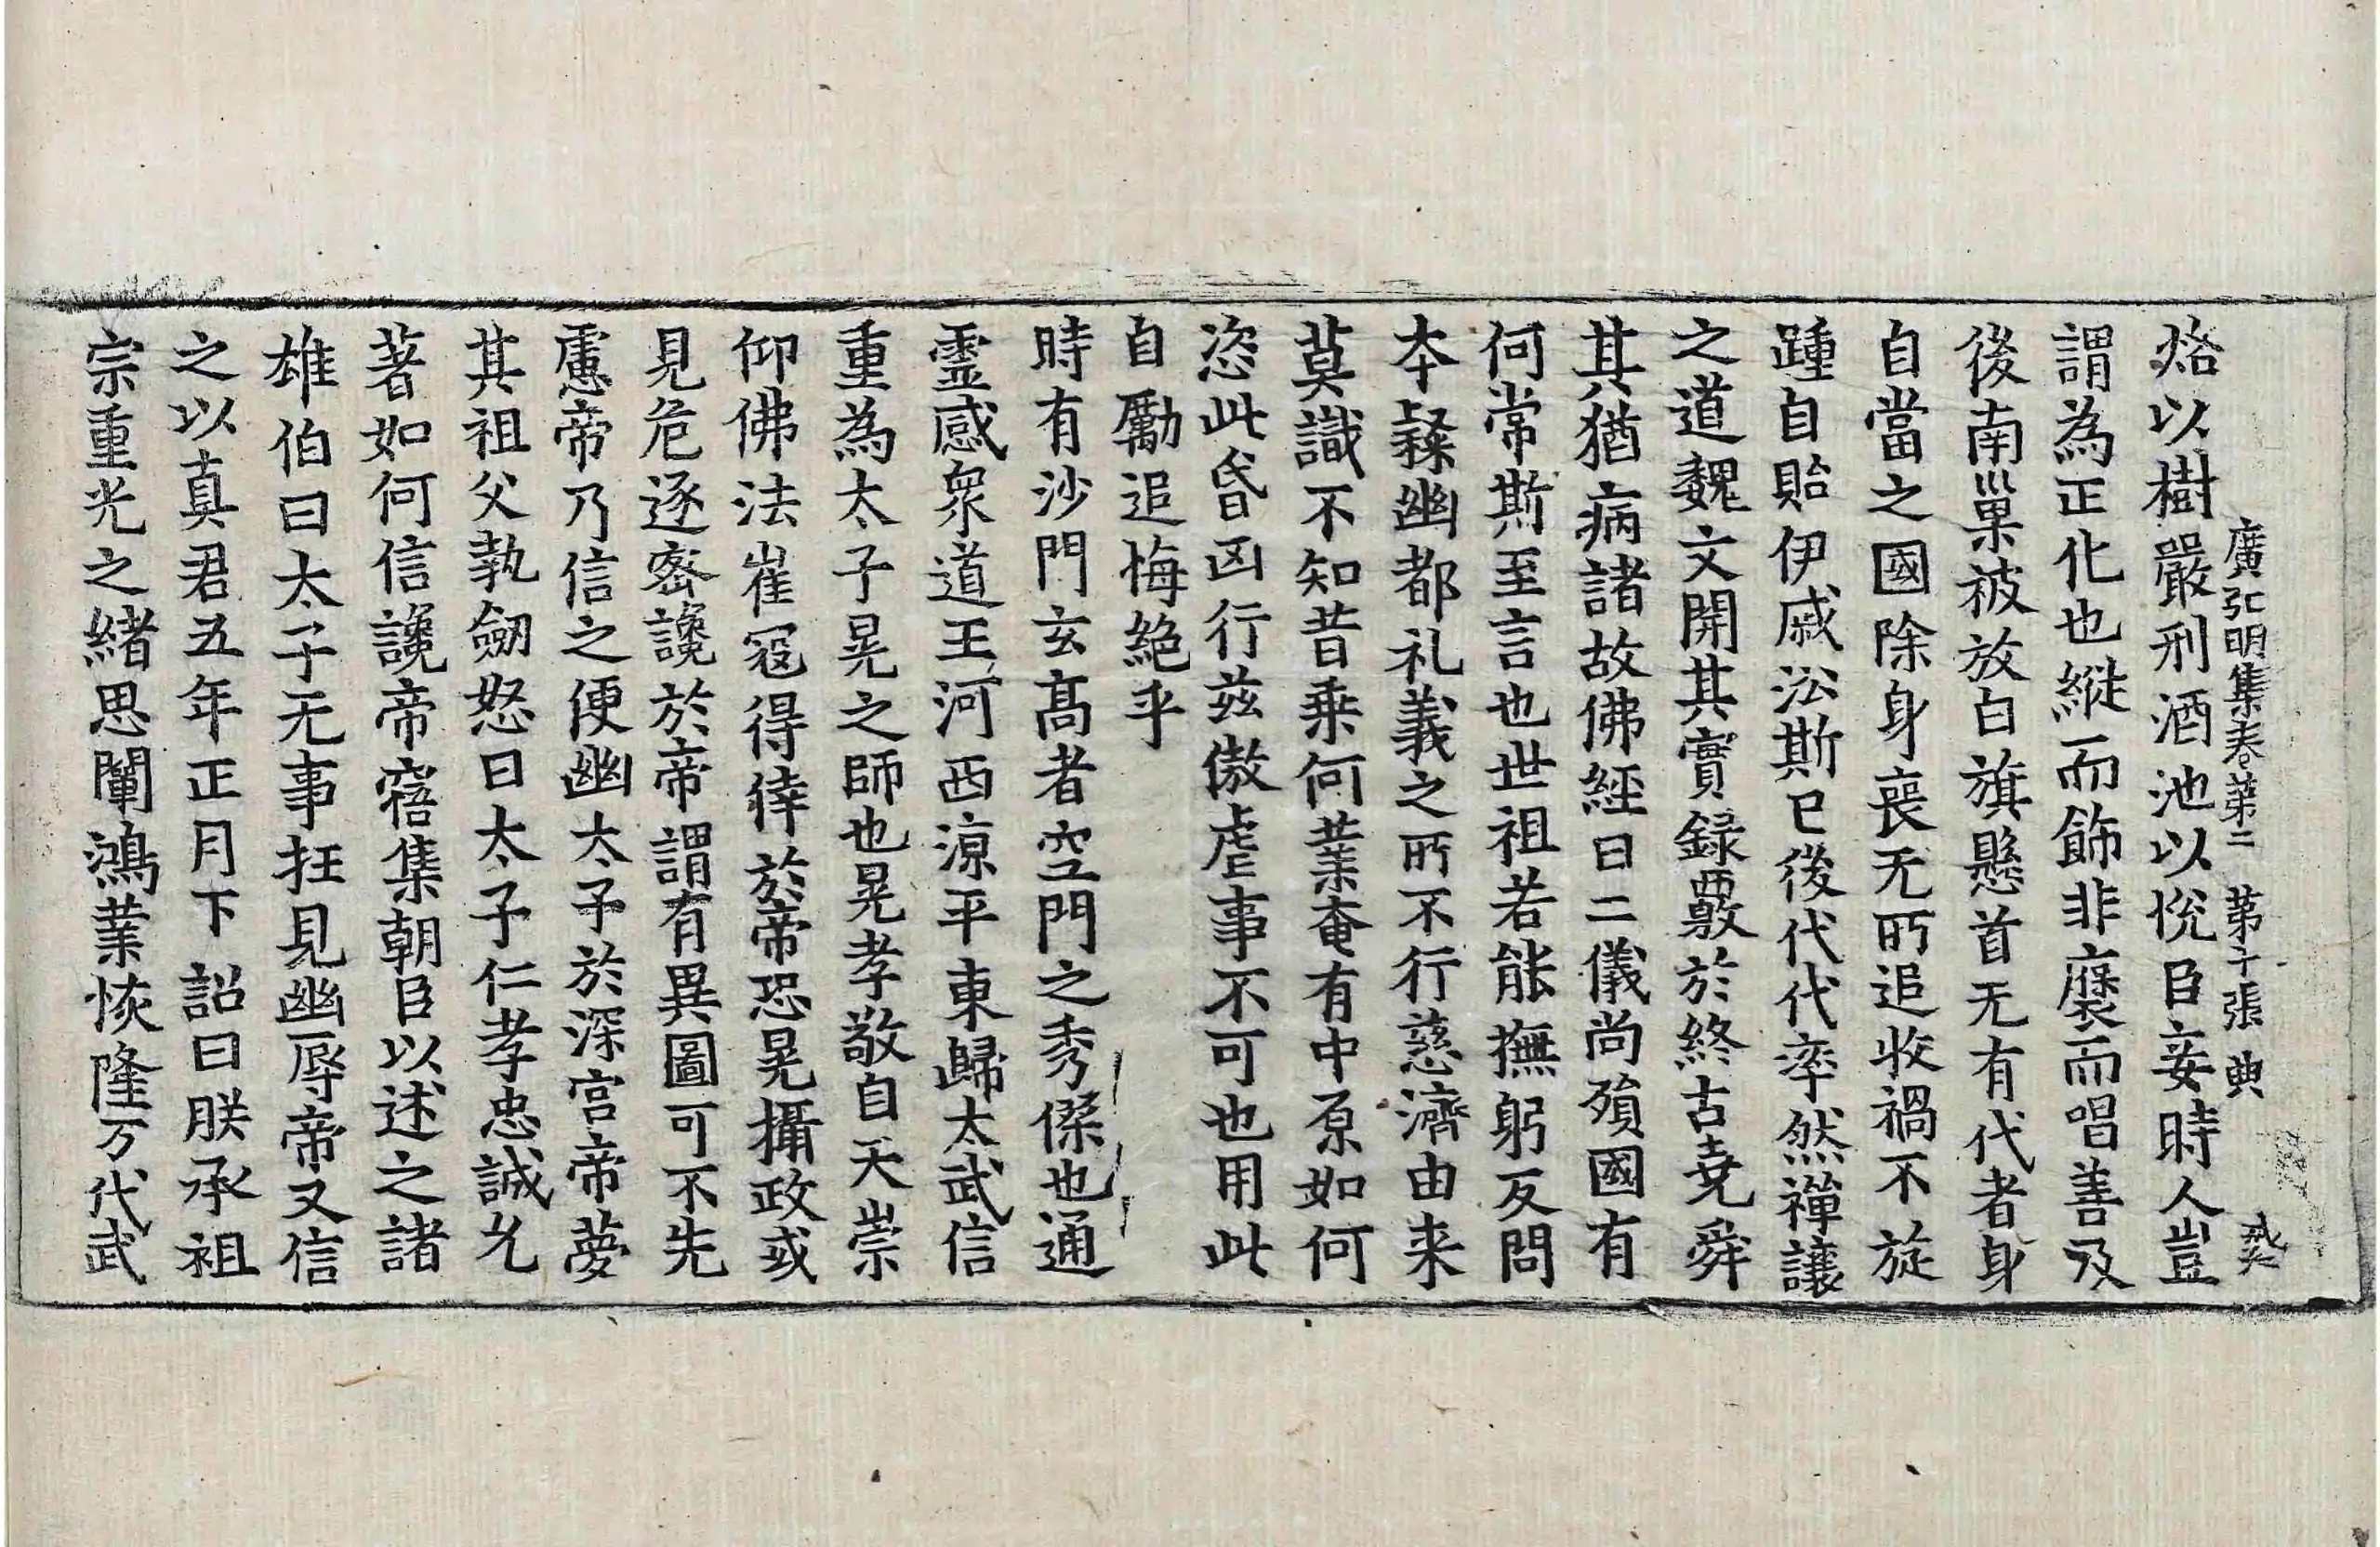 廣弘明集卷第二　第十張　典
烙以樹嚴刑酒池以恱臣妾時人豈
謂為正化也縱而飾非襃而唱善及
後南巢被放白旗懸首无有代者身
自當之國除身喪无所追收禍不旋
踵自貽伊戚訟斯已後代代率然禪讓
之道魏文開其實録覈於終古堯舜
其猶病諸故佛經曰二儀尚殞國有
何常斯至言也世祖若能撫躬反問
本繇幽都礼義之所不行慈濟由来
莫識不知昔乗何業奄有中原如何
恣此昏凶行兹傲虐事不可也用此
自勵追悔絶乎
時有沙門玄髙者空門之秀傑也通
靈感衆道王河西涼平東歸太武信
重為太子晃之師也晃孝敬自天崇
仰佛法崔寇得倖於帝恐晃攝政或
見危逐密讒於帝謂有異圖可不先
慮帝乃信之便幽太子於深宮帝夢
其祖父執劒怒曰太子仁孝忠誠允
著如何信讒帝寤集朝臣以述之諸
雄伯曰太子无事抂見幽辱帝又信
之以真君五年正月下詔曰朕承祖
宗重光之緒思闡鴻業恢隆万代武